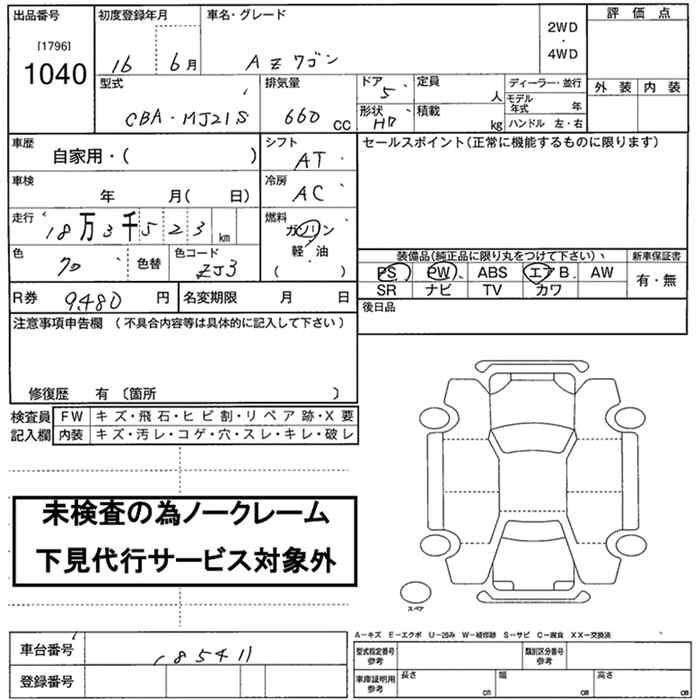 出品番号 初度登録年月 車名・グレード 評価点
[1796] 2WD
1040 16 年 6月 AZワゴン ・
4WD
型式 排気量 ドア 5 定員 人 ディーラー・並行 外装 内装
CBA-MJ21S 660 CC 形状 HB 積載 kg モデル年式 年
ハンドル 左・右
車歴 自家用・( ) シフト AT セールスポイント(正常に機能するものに限ります)
車検 年 月( 日) 冷房 AC
走行 18万3千523 km 燃料 ガソリン
軽 油
( )
色 クロ 色替 色コード ZJ3
装備品(純正品に限り丸をつけて下さい) 新車保証書
PS PW ABS エアB AW 有・無
SR ナビ TV カワ
R券 9,480 円 名変期限 月 日 後日品
注意事項申告欄 (不具合内容等は具体的に記入して下さい)
修復歴 有 〔箇所 〕
検査員 FW キズ・飛石・ヒビ割・リペア跡・X要
記入欄 内装 キズ・汚レ・コゲ・穴・スレ・キレ・破レ
未検査の為ノークレーム
下見代行サービス対象外
スペア
A-キズ E-エクボ U-凹み W-補修跡 S-サビ C-腐食 XX-交換済
車台番号 185411 型式指定番号 参考 類別区分番号 参考
登録番号 車庫証明用 参考 長さ cm 幅 cm 高さ cm